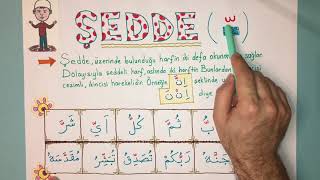 ŞEDDE ( ّ )
Şedde, üzerinde bulunduğu harfin iki defa okunmasını sağlar.
Dolayısıyla şeddeli harf, aslında iki harftir. Bunlardan
cezimli, ikincisi harekelidir. Örneğin اِنَّ şeklinde
اِنْنَ diye
بُّ ثُمَّ كُلُّ اَيُّ شَرَّ
جَنَّةٍ رَبُّكُمْ تُصَدِّقُ تُبَشِّرُ مُقَدَّسَةٍ